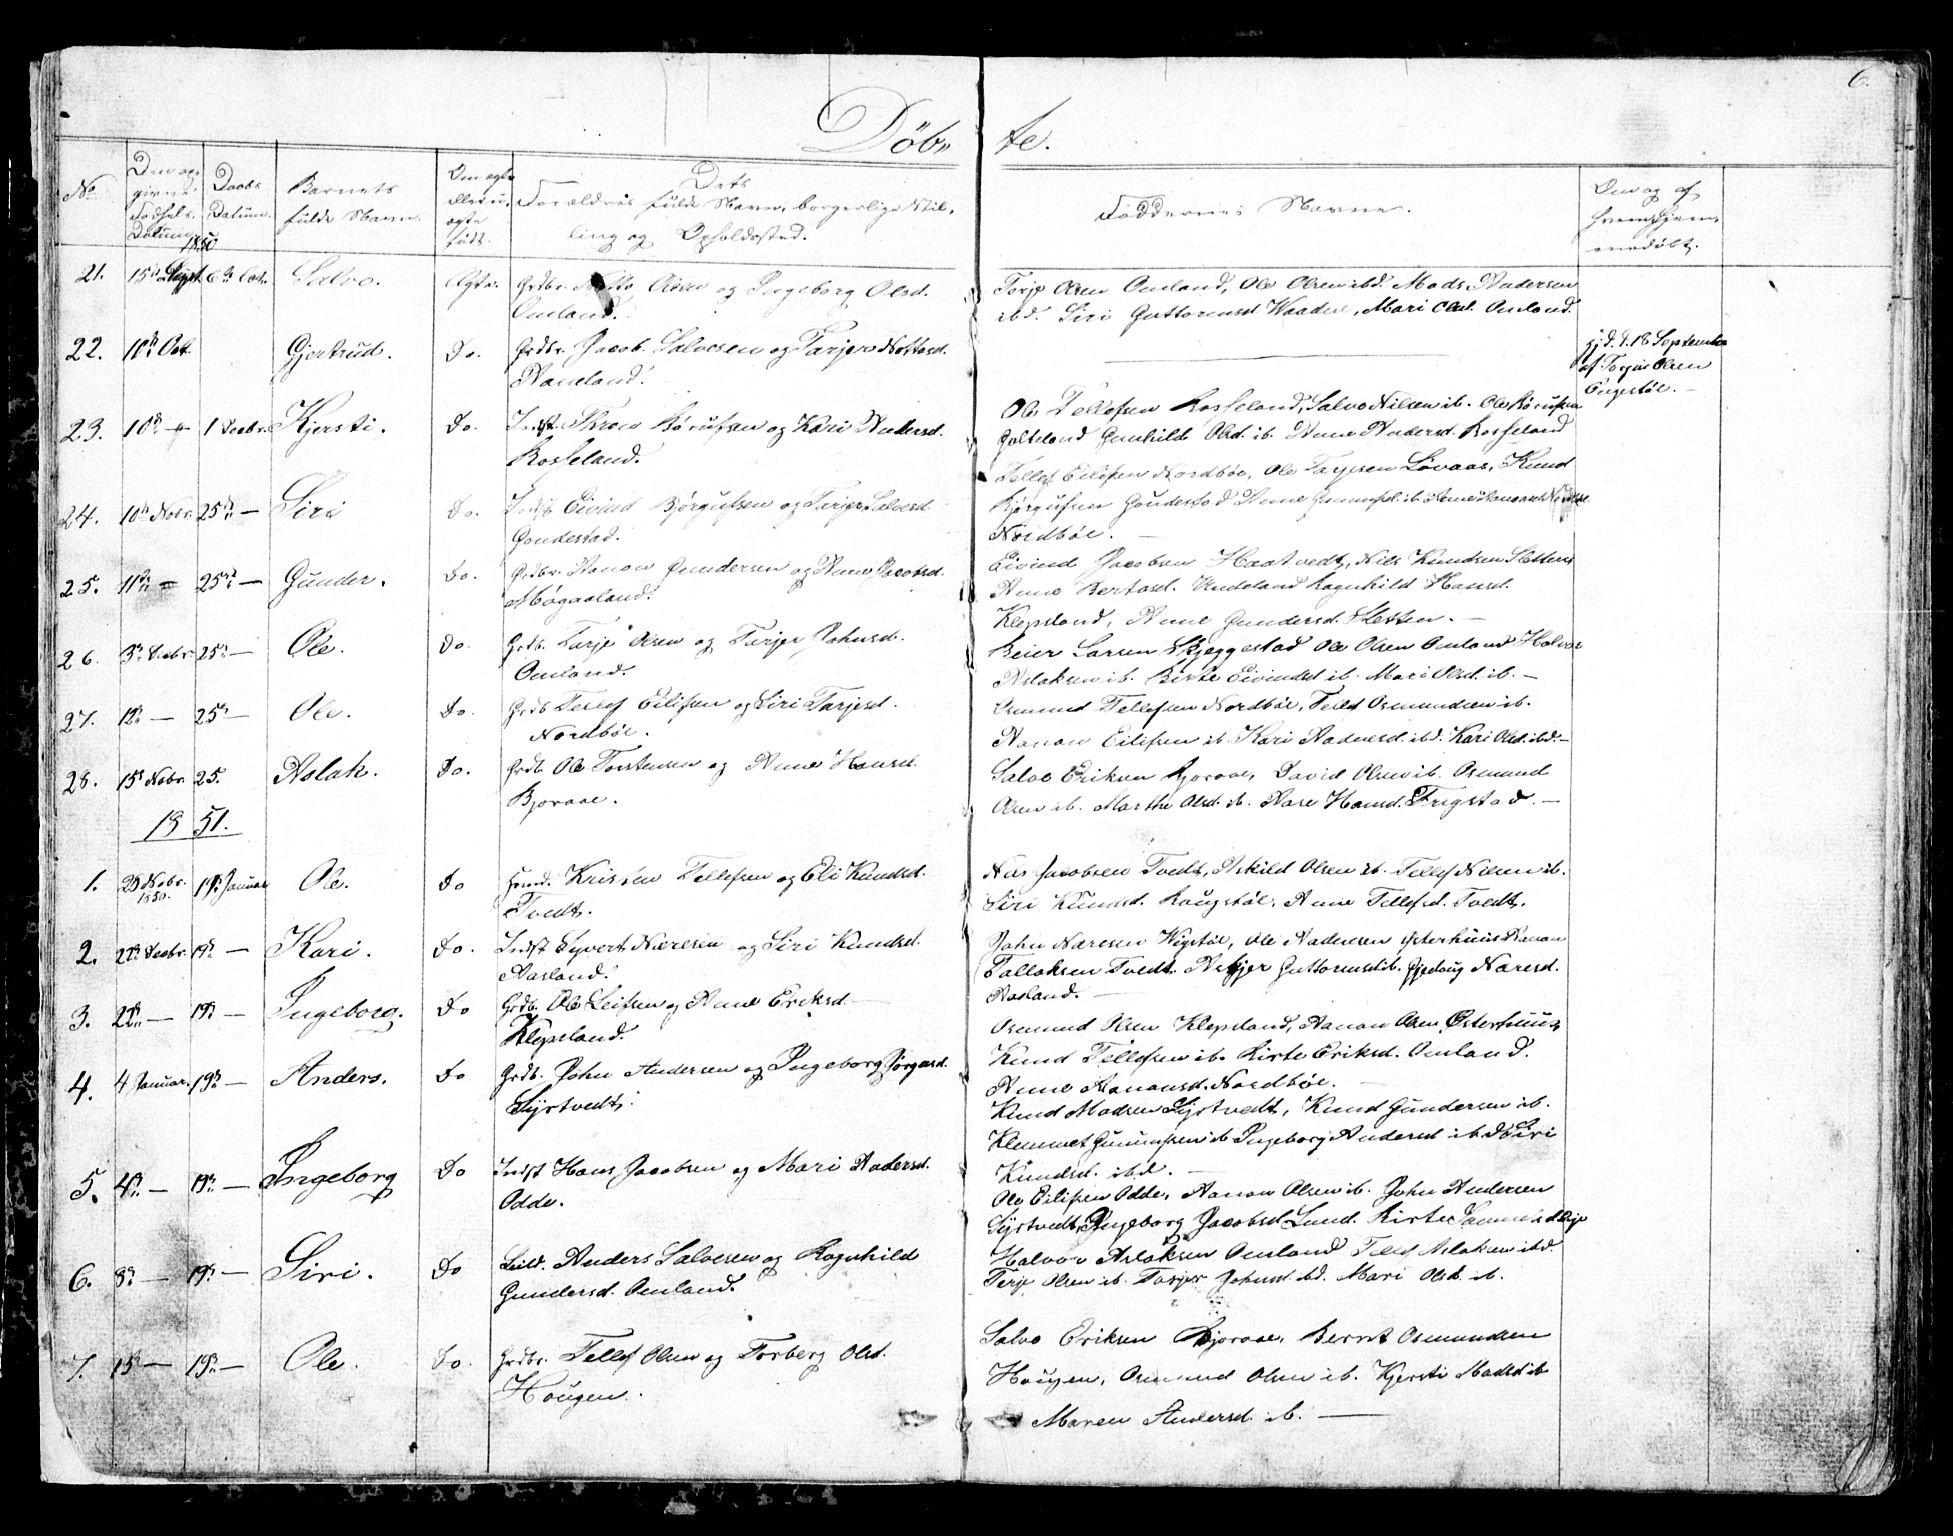 6.
Døb- te.
No
Den op-
givne
Fødsels-
Datum.
Daabs
Datum.
Barnets
fulde Navn.
Om ægte
eller u-
ægte
født.
Dets
Forældres fulde Navn, borgerlige Stil-
ling og Opholdssted.
Faddernes Navne.
Om og af
hvem hjem-
medøbt.
1850
21. 15de Sept. 6te Oct. Salve. Ægte. Grdbr. Olsen og Ingeborg Olsd.
Omland.
Terje Olsen Omland, Ole Olsen ibd. Mads Andersen
ibd. Siri Guttormsd. Waadne, Mari Olsd. Omland.
22. 10de Oct. Gjertrud. Do. Grdbr. Jacob Salvesen og Tarjer
Haneland.
hjd. d. 18 September
af Torjus Olsen
Engestøl.
23. 10de 1 Decbr. Kjersti. Do. Indst. og Kari Andersd.
Rosseland.
Ole Tellefsen Rosseland, Salve Nilsen ib. Ole
Gunhild Olsd. ib. Anne Andersd. Rosseland
24. 10de Nobr. 25de — Siri Do. Indst. Eivind Bjørgufsen og Tarjer Salvesd
Goudestad.
Tellef Eilifsen Nordbøe, Ole Tarjesen Løvaas, Knud
Bjørgufsen Goudestad Anne
Nordbøe. —
25. 11te 25de — Gunder. Do. Grdbr. Aanon Gundersen og Anne Jacobsd.
Møgaaland.
Eivind Jacobsen Haatvedt, Nils Knudsen Sletten
Anne Bertosd. Undeland Ragnhild Hansd.
Klepsland, Anne Gundersd. Sletten. —
26. 3de Decbr. 25de — Ole. Do. Grdb. Tarje Olsen og Tarjer Johnsd.
Omland.
Beier Larsen Skjeggestad Ole Olsen Omland Halvor
Aslaksen ib. Birte Eivindsd ib. Mari Olsd. ib. —
27. 12te — 25de — Ole. Do. Grdb Tellef Eilifsen og Siri Tarjesd.
Nordbøe.
Osmund Tellefsen Nordbøe, Tellef Osmundsen ib.
Aanon Eilifsen ib. Kari Aadnesd. ibd. Kari Olsd. ibd. —
28. 15de Nobr. 25. Aslak. Do. Grdb. Ole Torstensen og Anne Hansd.
Bjoraae.
Salve Eriksen Bjoraae, David Olsen ib. Osmund
Olsen ib. Marthe Olsd. ib. Aase Hansd. Frigstad. —
1851.
1. Nobr. 1850. 19de Januar Ole. Do Kristen Tellefsen og Eli Knudsd.
Tvedt.
Nils Jacobsen Tvedt, Askild Olsen ib. Tellef Nilsen ib.
Siri Knudsd. Rougstøl, Anne Tellefsd. Tvedt.
2. Decbr. 19de — Kari. Do. Indst Syvert Næresen og Siri Knudsd.
Aasland.
John Næresen Wigstøl, Ole Aadnesen Østerhuus Aanon
Tallaksen Tvedt. Guttormsd. ib. Næresd.
Aasland. —
3. — 19de — Ingeborg. Do Grdb. Ole Leifsen og Anne Eriksd. —
Klepsland.
Osmund Olsen Klepsland, Aanon Olsen Østerhuus
Knud Tellefsen ib. Birte Eriksd. Omland.
Anne Aanonsd. Nordbøe. —
4. 4 Januar. 19de — Anders. Do Grdb. John Andersen og Ingeborg Jørgensd.
Syrtvedt.
Knud Madsen Syrtvedt, Knud Gundersen ib.
Klemmet Gunufsen ib Ingeborg Andersd ib Siri
Knudsd. ibd. —
5. 4de — 19de — Ingeborg Do Indst Hans Jacobsen og Mari Aadnesd.
Odde.
Ole Eilifsen Odde, Aanon Olsen ib. John Andersen
Syrtvedt, Ingeborg Jacobsd Lund. Birte
6. 8de — 19de — Siri. Do Leild. Anders Salvesen og Ragnhild
Gundersd. Omland.
Halvor Aslaksen Omland Tellef Aslaksen ibd.
Terje Olsen ib. Tarjer Johnsd. ibd. Mari Olsd. ib.
7. — 19de — Ole. Do. Grdbr. Tellef Olsen og Torberg Olsd.
Hougen.
Salve Eriksen Bjoraae, Bernt Osmundsen
Hougen, Osmund Olsen ib. Kjersti Madsd ib
Maren Andersd. ib. —